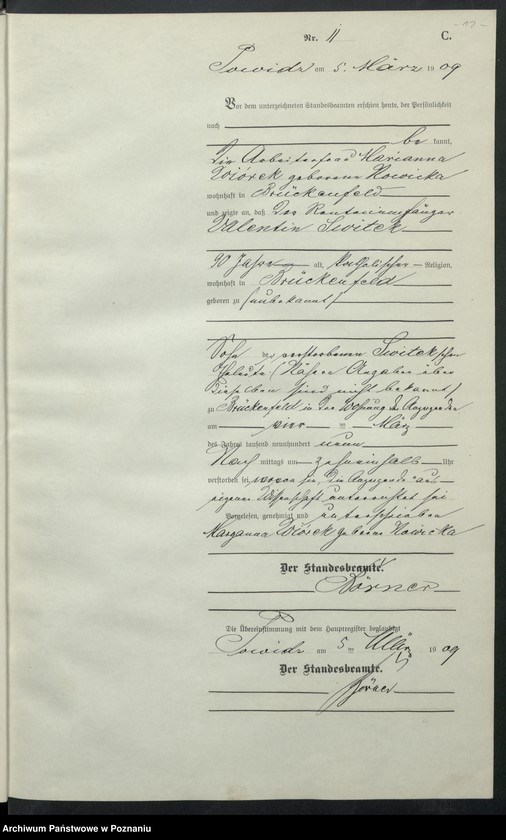 - 12 -
Nr. 11 C.
Powidz am 5. März 1909
Vor dem unterzeichneten Standesbeamten erschien heute, der Persönlichkeit
nach
be kannt,
die Arbeiterfrau Marianna
Wiórek geborene Nowicka
wohnhaft in Brückenfeld
und zeigte an, daß der Rentenempfänger
Valentin Switek
90 Jahre alt, katholischer Religion,
wohnhaft in Brückenfeld
geboren zu (unbekannt)
Sohn der verstorbenen Switek'schen
Eheleute (Nähere Angaben über
dieselben sind nicht bekannt)
zu Brückenfeld in der Wohnung der Anzeigende
am vier ten März
des Jahres tausend neunhundert neun
Nach mittags um zehneinhalb Uhr
verstorben sei, wovon sie, die Anzeigende aus
eigener Wissenschaft unterrichtet sei
Vorgelesen, genehmigt und unterschrieben
Maryanna Wiórek geborene Nowicka
Der Standesbeamte.
Börner
Die Übereinstimmung mit dem Hauptregister beglaubigt
Powidz am 5 ten März 1909
Der Standesbeamte.
Börner
Archiwum Państwowe w Poznaniu